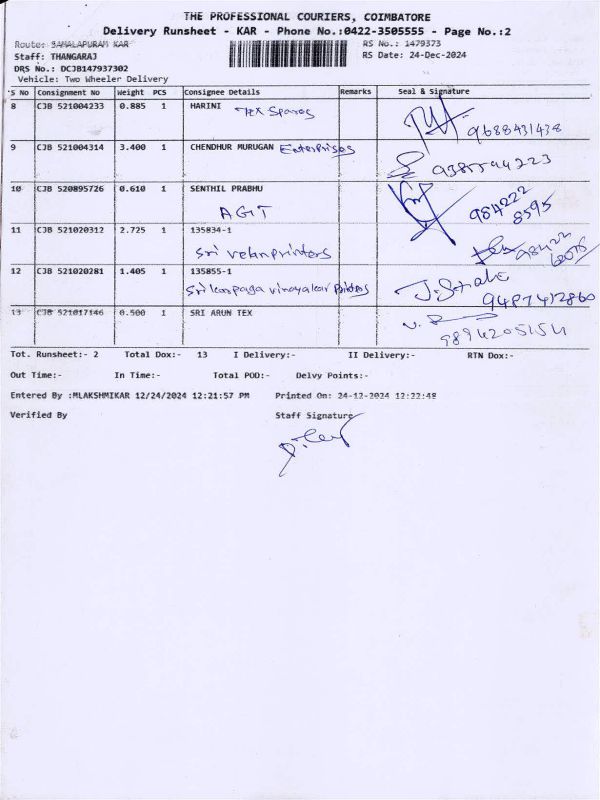 THE PROFESSIONAL COURIERS, COIMBATORE
Delivery Runsheet - KAR - Phone No.:0422-3505555 - Page No.:2
Route: SAMALAPURAM KAR RS No.: 1479373
Staff: THANGARAJ RS Date: 24-Dec-2024
DRS No.: DCJB147937302
Vehicle: Two Wheeler Delivery
S No Consignment No Weight PCS Consignee Details Remarks Seal & Signature
8 CJB 521004233 0.885 1 HARINI
Tex Spares 9688431438
9 CJB 521004314 3.400 1 CHENDHUR MURUGAN Enterprises
10 CJB 520895726 0.610 1 SENTHIL PRABHU
AGIT 984222
8595
11 CJB 521020312 2.725 1 135834-1
Sri velan printers 98422
12 CJB 521020281 1.405 1 135855-1
Sri karpaga vinayakar Printers 9487412860
13 CJB 521017146 0.500 1 SRI ARUN TEX
9894205154
Tot. Runsheet:- 2 Total Dox:- 13 I Delivery:- II Delivery:- RTN Dox:-
Out Time:- In Time:- Total POD:- Delvy Points:-
Entered By :MLAKSHMIKAR 12/24/2024 12:21:57 PM Printed On: 24-12-2024 12:22:48
Verified By Staff Signature